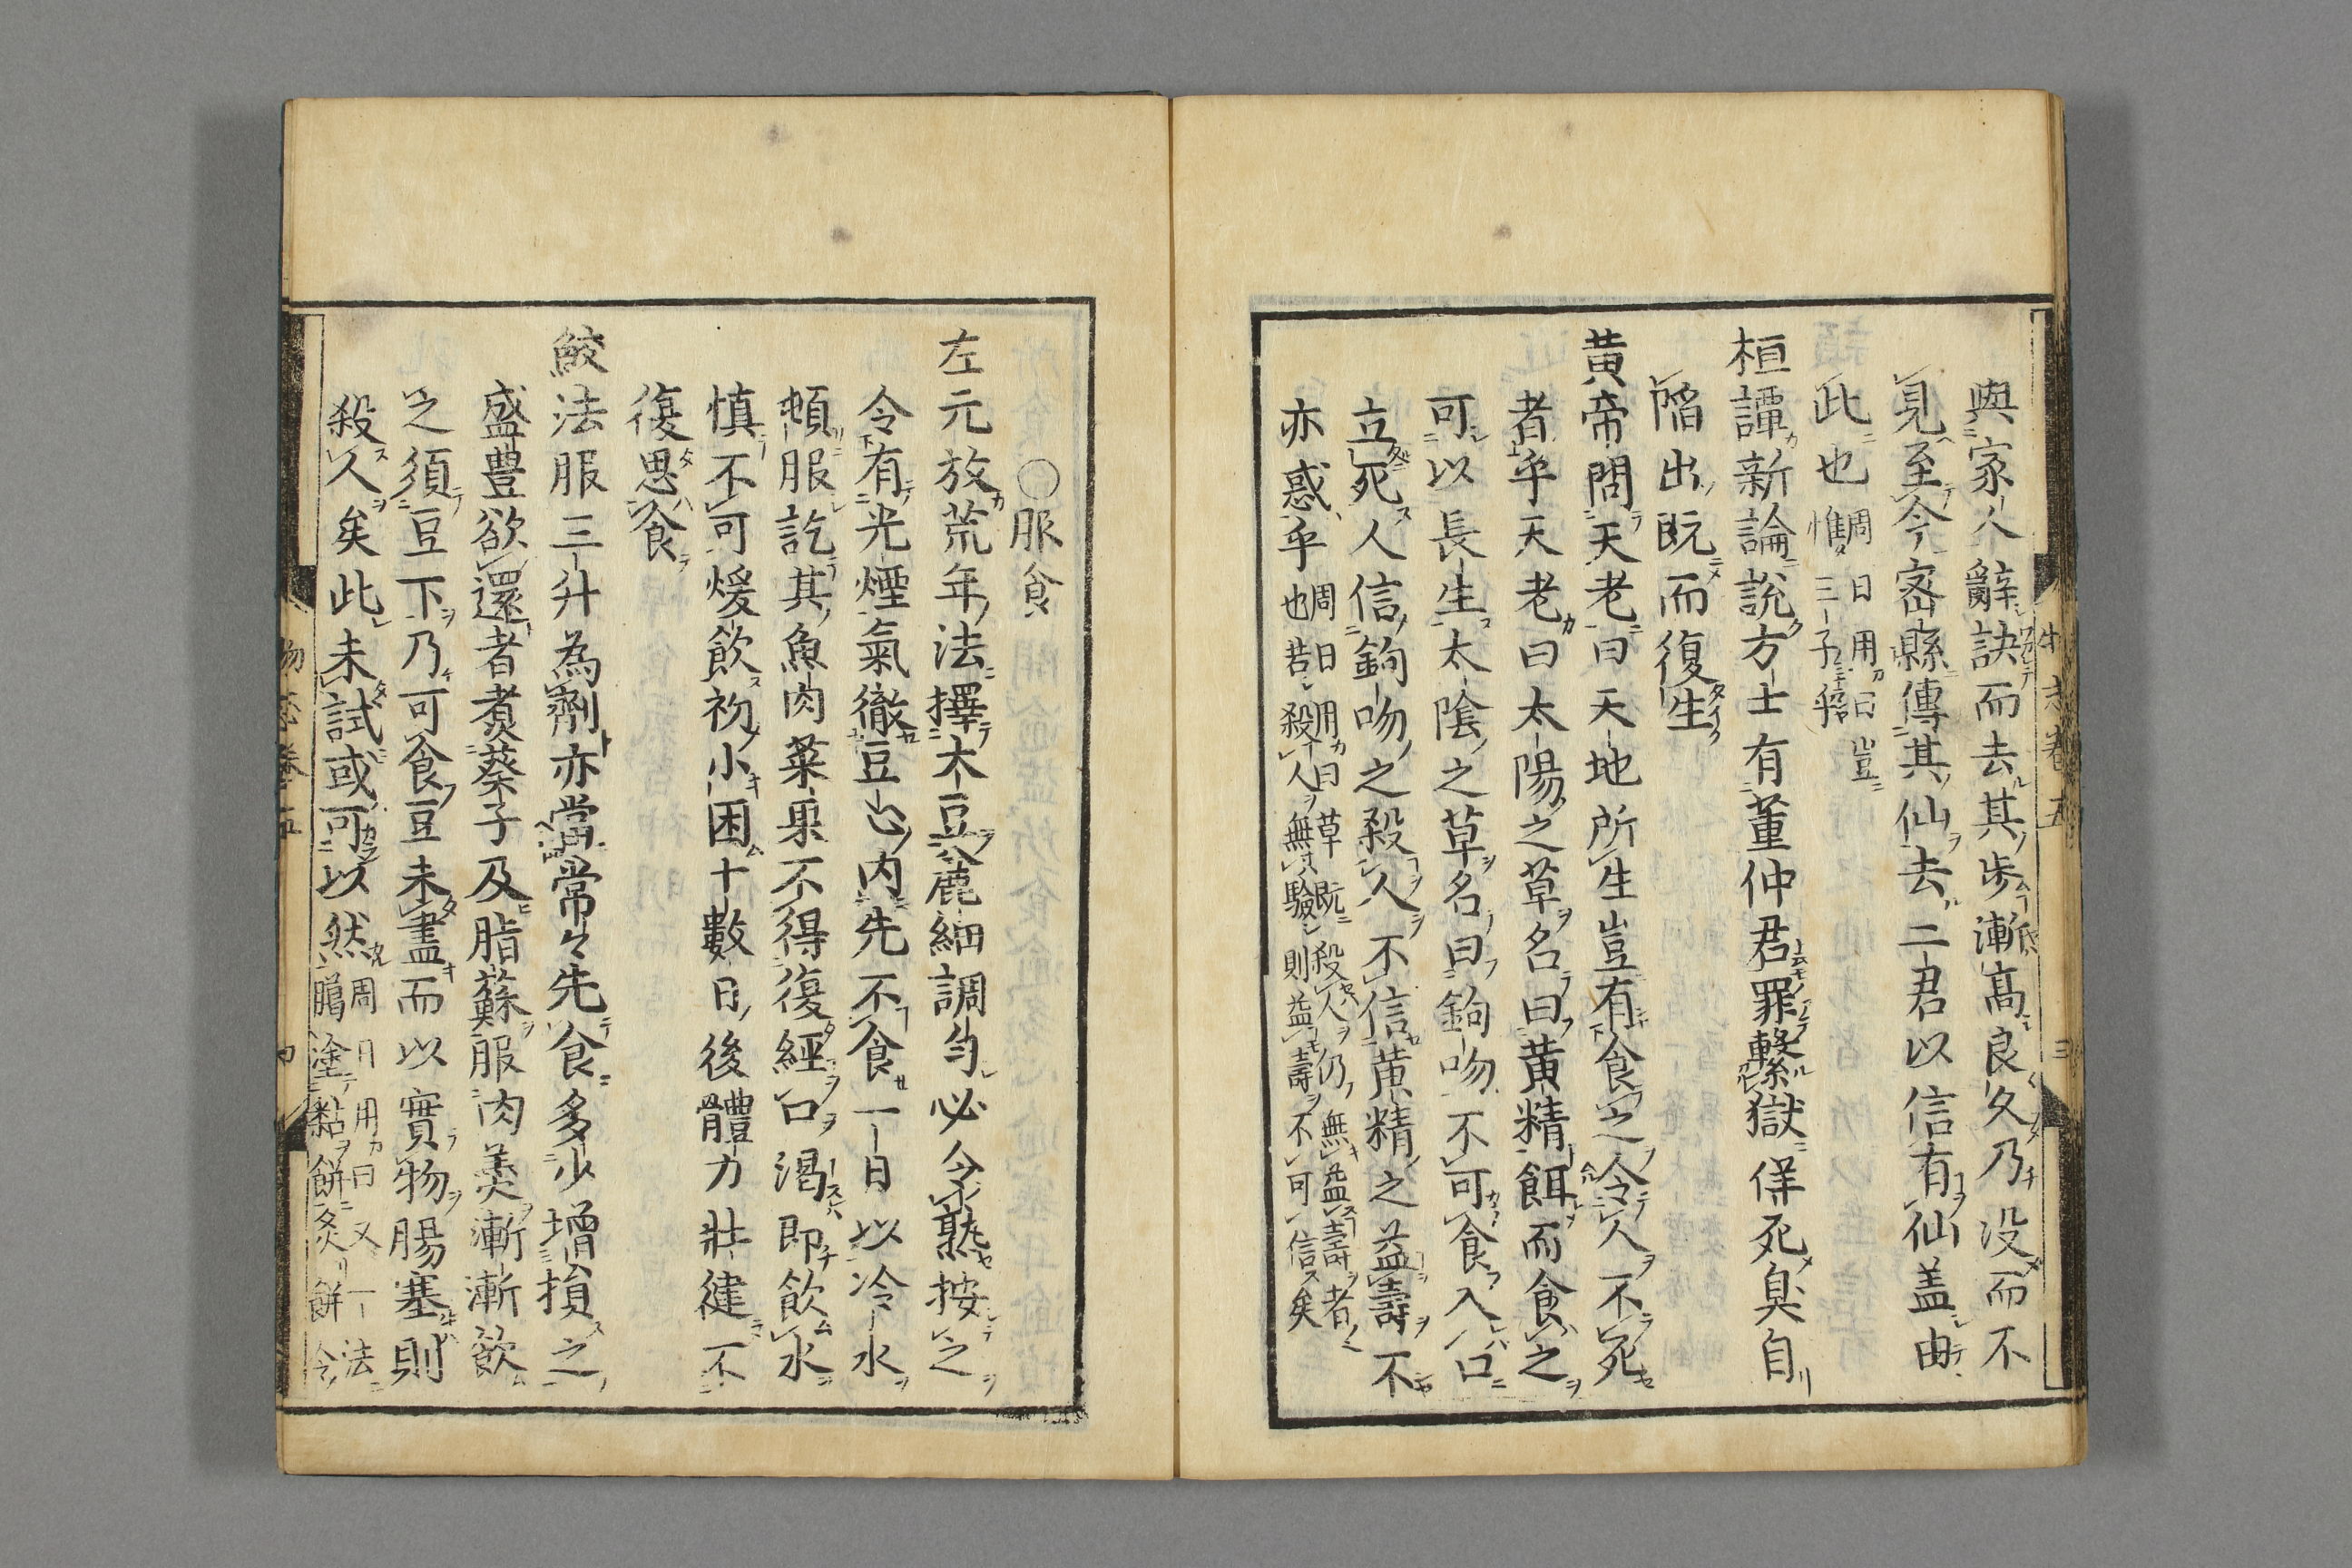 與家人辭訣而去其歩漸高良久乃没而不
見至今宻縣傳其仙去二君以信有仙盖由
此也周日用曰豈惟三子乎
桓譚新論說方士有董仲君罪繫獄佯死臭自
陷出既而復生
黄帝問天老曰天地所生豈有食之令人不死
者乎天老曰太陽之草名曰黄精餌而食之
可以長生太陰之草名曰鉤吻不可食入口
立死人信鉤吻之殺人不信黄精之益壽不
亦惑乎周日用曰草既殺人仍無益壽者也若殺人無驗則益壽不可信矣
○服食
左元放荒年法擇大豆麄細調匀必令熟按之
令有光煙氣徹豆心内先不食一日以冷水
頓服訖其魚肉菜果不得復經口渇即飲水
慎不可煖飲初小困十數日後體力壯健不
復思食
鮫法服三升為劑亦當常々先食多少増損之
盛豊欲還者煑葵子及脂蘇服肉羙漸漸飲
之須豆下乃可食豆未盡而以實物腸塞則
殺人矣此未試或可以然周日用曰又一法腊塗黏餅炙餅令
物志卷五